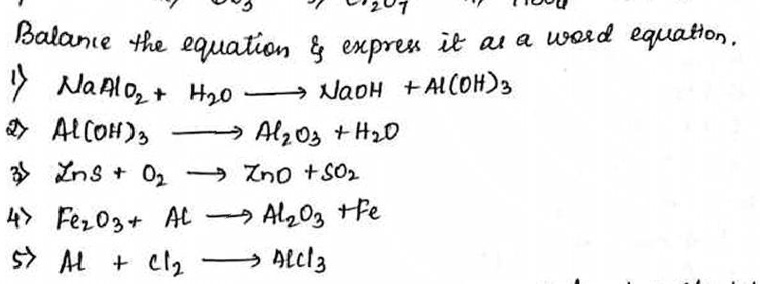 Balance the equation & express it as a word equation.
1) NaAlO2 + H2O ⟶ NaOH + Al(OH)3
2) Al(OH)3 ⟶ Al2O3 + H2O
3) ZnS + O2 ⟶ ZnO + SO2
4) Fe2O3 + Al ⟶ Al2O3 + Fe
5) Al + Cl2 ⟶ AlCl3